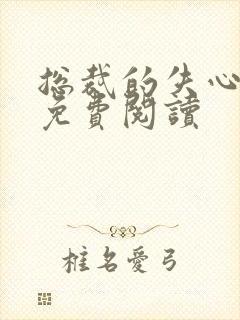 总裁的失心
免費閱讀
椎名愛弓